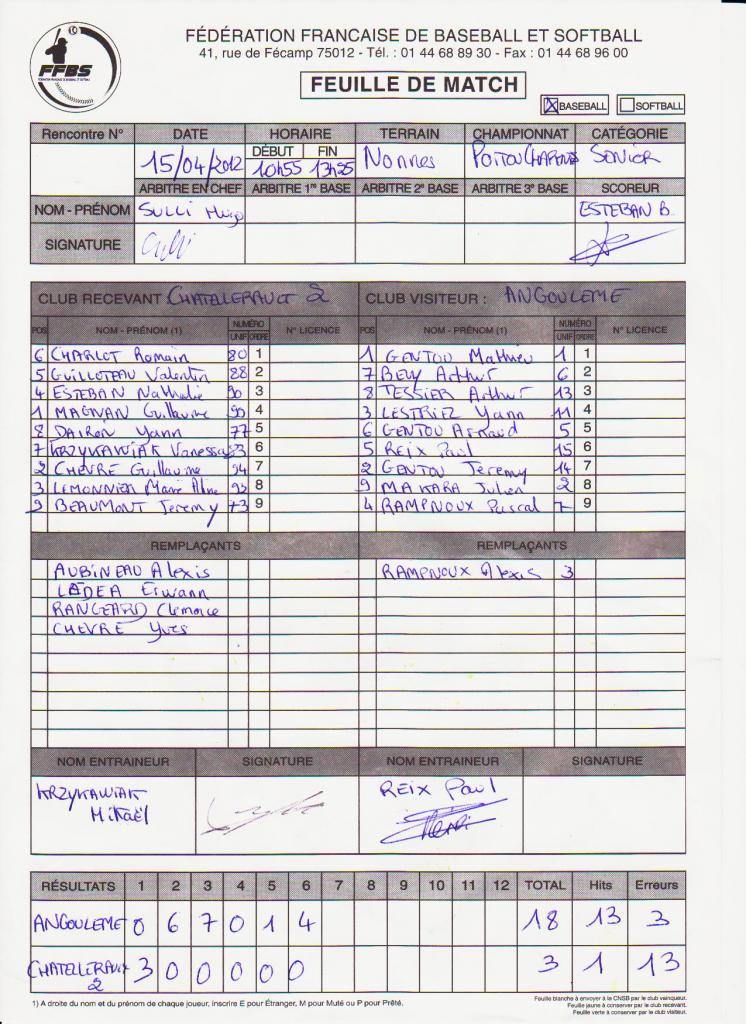 FÉDÉRATION FRANCAISE DE BASEBALL ET SOFTBALL
41, rue de Fécamp 75012 - Tél. : 01 44 68 89 30 - Fax : 01 44 68 96 00
FFBS
FEUILLE DE MATCH
BASEBALL SOFTBALL
Rencontre N° DATE HORAIRE TERRAIN CHAMPIONNAT CATÉGORIE
DÉBUT FIN
15/04/2012 10h55 13h25 Nonnes SENIOR
ARBITRE EN CHEF ARBITRE 1re BASE ARBITRE 2e BASE ARBITRE 3e BASE SCOREUR
NOM - PRÉNOM SULLI Hugo ESTEBAN B.
SIGNATURE
CLUB RECEVANT CHATELLERAULT 2 CLUB VISITEUR : ANGOULEME
POS NOM - PRÉNOM (1) NUMÉRO N° LICENCE POS NOM - PRÉNOM (1) NUMÉRO N° LICENCE
UNIF ORDRE UNIF ORDRE
6 CHARLOT Romain 80 1 1 GENTOU Mathieu 1 1
5 GUILLOTEAU Valentin 88 2 7 Arthur 6 2
4 ESTEBAN Nathalie 90 3 8 TESSIER Arthur 13 3
1 MAGNAN Guillaume 99 4 3 LESTRIEZ Yann 11 4
8 DAIRON Yann 77 5 6 GENTOU Arnaud 5 5
7 KRZYKAWIAK Vanessa 6 5 REIX Paul 15 6
2 CHEVRE Guillaume 94 7 2 GENTOU Jeremy 14 7
3 LEMONNIER Marie Aline 92 8 9 MAKARA Julien 2 8
9 BEAUMONT Jeremy 73 9 4 RAMPNOUX Pascal 7 9
REMPLAÇANTS REMPLAÇANTS
AUBINEAU Alexis RAMPNOUX Alexis 3
LADEA Erwann
RANGEARD Clemence
CHEVRE Yves
NOM ENTRAINEUR SIGNATURE NOM ENTRAINEUR SIGNATURE
KRZYKAWIAK REIX Paul
Mikaël
RÉSULTATS 1 2 3 4 5 6 7 8 9 10 11 12 TOTAL Hits Erreurs
ANGOULEME 0 6 7 0 1 4 18 13 3
CHATELLERAULT 3 0 0 0 0 0 3 1 13
2
1) A droite du nom et du prénom de chaque joueur, inscrire E pour Étranger, M pour Muté ou P pour Prêté.
Feuille blanche à envoyer à la CNSB par le club vainqueur.
Feuille jaune à conserver par le club recevant.
Feuille verte à conserver par le club visiteur.